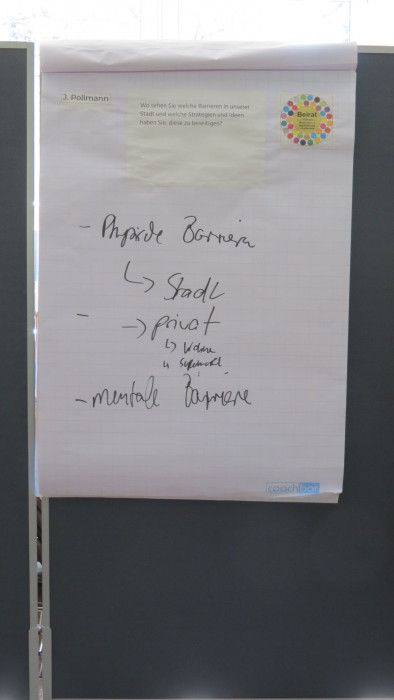 J. Pollmann
Wo sehen Sie welche Barrieren in unserer
Stadt und welche Strategien und Ideen
haben Sie, diese zu beseitigen?
Beirat
- Physische Barrieren
↳ Stadt
- → privat
- mentale Barriere
coach